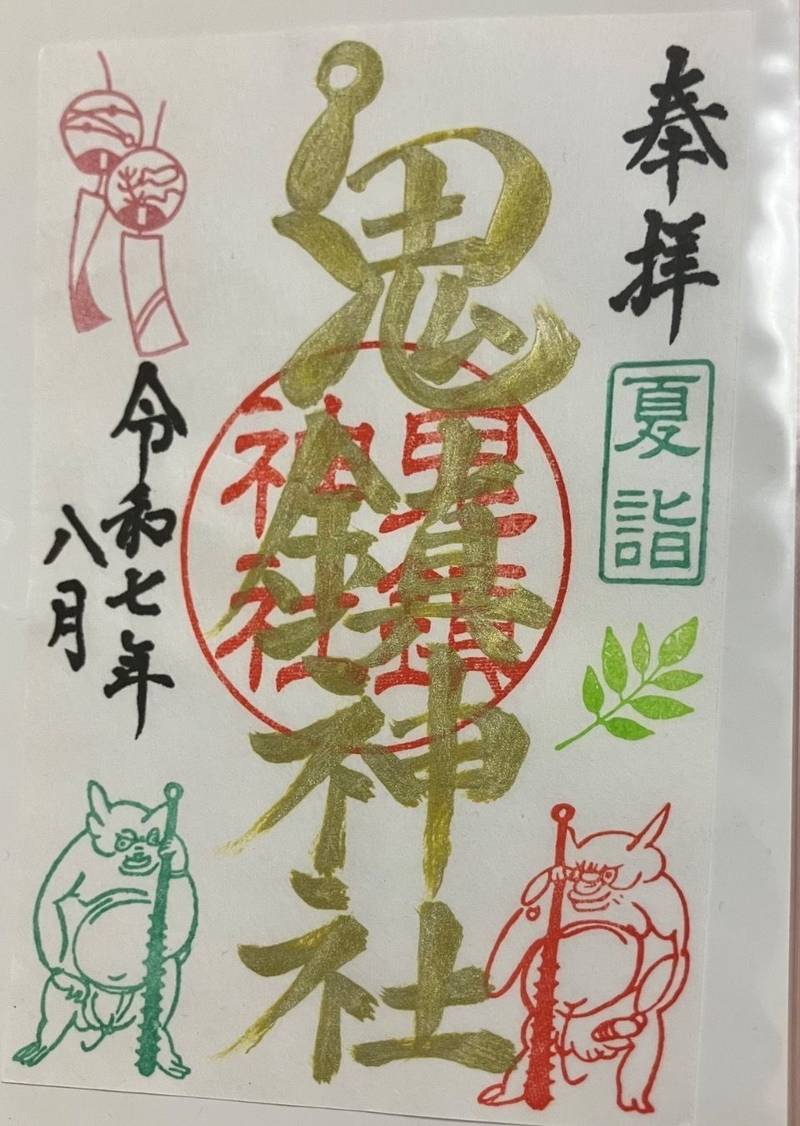 奉拝
夏詣
鬼鎮神社
神社
令和七年
八月